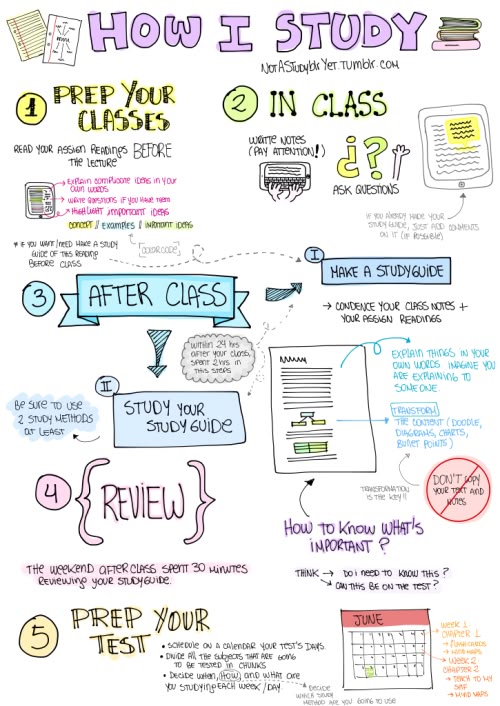 HOW I STUDY
NOTASTUDYBLRYET.TUMBLR.COM
1 PREP YOUR
CLASSES
READ YOUR ASSIGN READINGS BEFORE
THE LECTURE
EXPLAIN COMPLICATE IDEAS IN YOUR
OWN WORDS
WRITE QUESTIONS IF YOU HAVE THEM
HIGHLIGHT IMPORTANT IDEAS
CONCEPT // EXAMPLES // IMPORTANT IDEAS
COLOR CODE
* IF YOU WANT/NEED MAKE A STUDY
GUIDE OF THIS READING
BEFORE CLASS
2 IN CLASS
WRITE NOTES
(PAY ATTENTION!)
¿?
ASK QUESTIONS
IF YOU ALREADY MADE YOUR
STUDYGUIDE, JUST ADD COMMENTS
ON IT (IF POSSIBLE)
3 AFTER CLASS
I
MAKE A STUDYGUIDE
→ CONDENCE YOUR CLASS NOTES +
YOUR ASSIGN READINGS
WITHIN 24 HRS
AFTER YOUR CLASS,
SPENT 2 HRS IN
THIS STEPS
II
STUDY YOUR
STUDY GUIDE
BE SURE TO USE
2 STUDY METHODS
AT LEAST
EXPLAIN THINGS IN YOUR
OWN WORDS. IMAGINE YOU
ARE EXPLAINING TO
SOMEONE
TRANSFORM
THE CONTENT (DOODLE,
DIAGRAMS, CHARTS,
BULLET POINTS)
TRANSFORMATION
IS THE KEY!!
DON'T COPY
YOUR TEXT AND
NOTES
4 {REVIEW}
THE WEEKEND AFTER CLASS SPENT 30 MINUTES
REVIEWING YOUR STUDYGUIDE.
HOW TO KNOW WHAT'S
IMPORTANT?
THINK → DO I NEED TO KNOW THIS?
→ CAN THIS BE ON THE TEST?
5 PREP YOUR
TEST
• SCHEDULE ON A CALENDAR YOUR TEST'S DAYS.
• DIVIDE ALL THE SUBJECTS THAT ARE GOING
TO BE TESTED IN CHUNKS
• DECIDE WHEN, HOW AND WHAT ARE
YOU STUDYING EACH WEEK/DAY
DECIDE
WHICH STUDY
METHOD ARE YOU GOING TO USE
JUNE
WEEK 1
CHAPTER 1
→ FLASHCARDS
→ MIND MAPS
WEEK 2
CHAPTER 2
→ TEACH TO MY
SELF
→ MIND MAPS